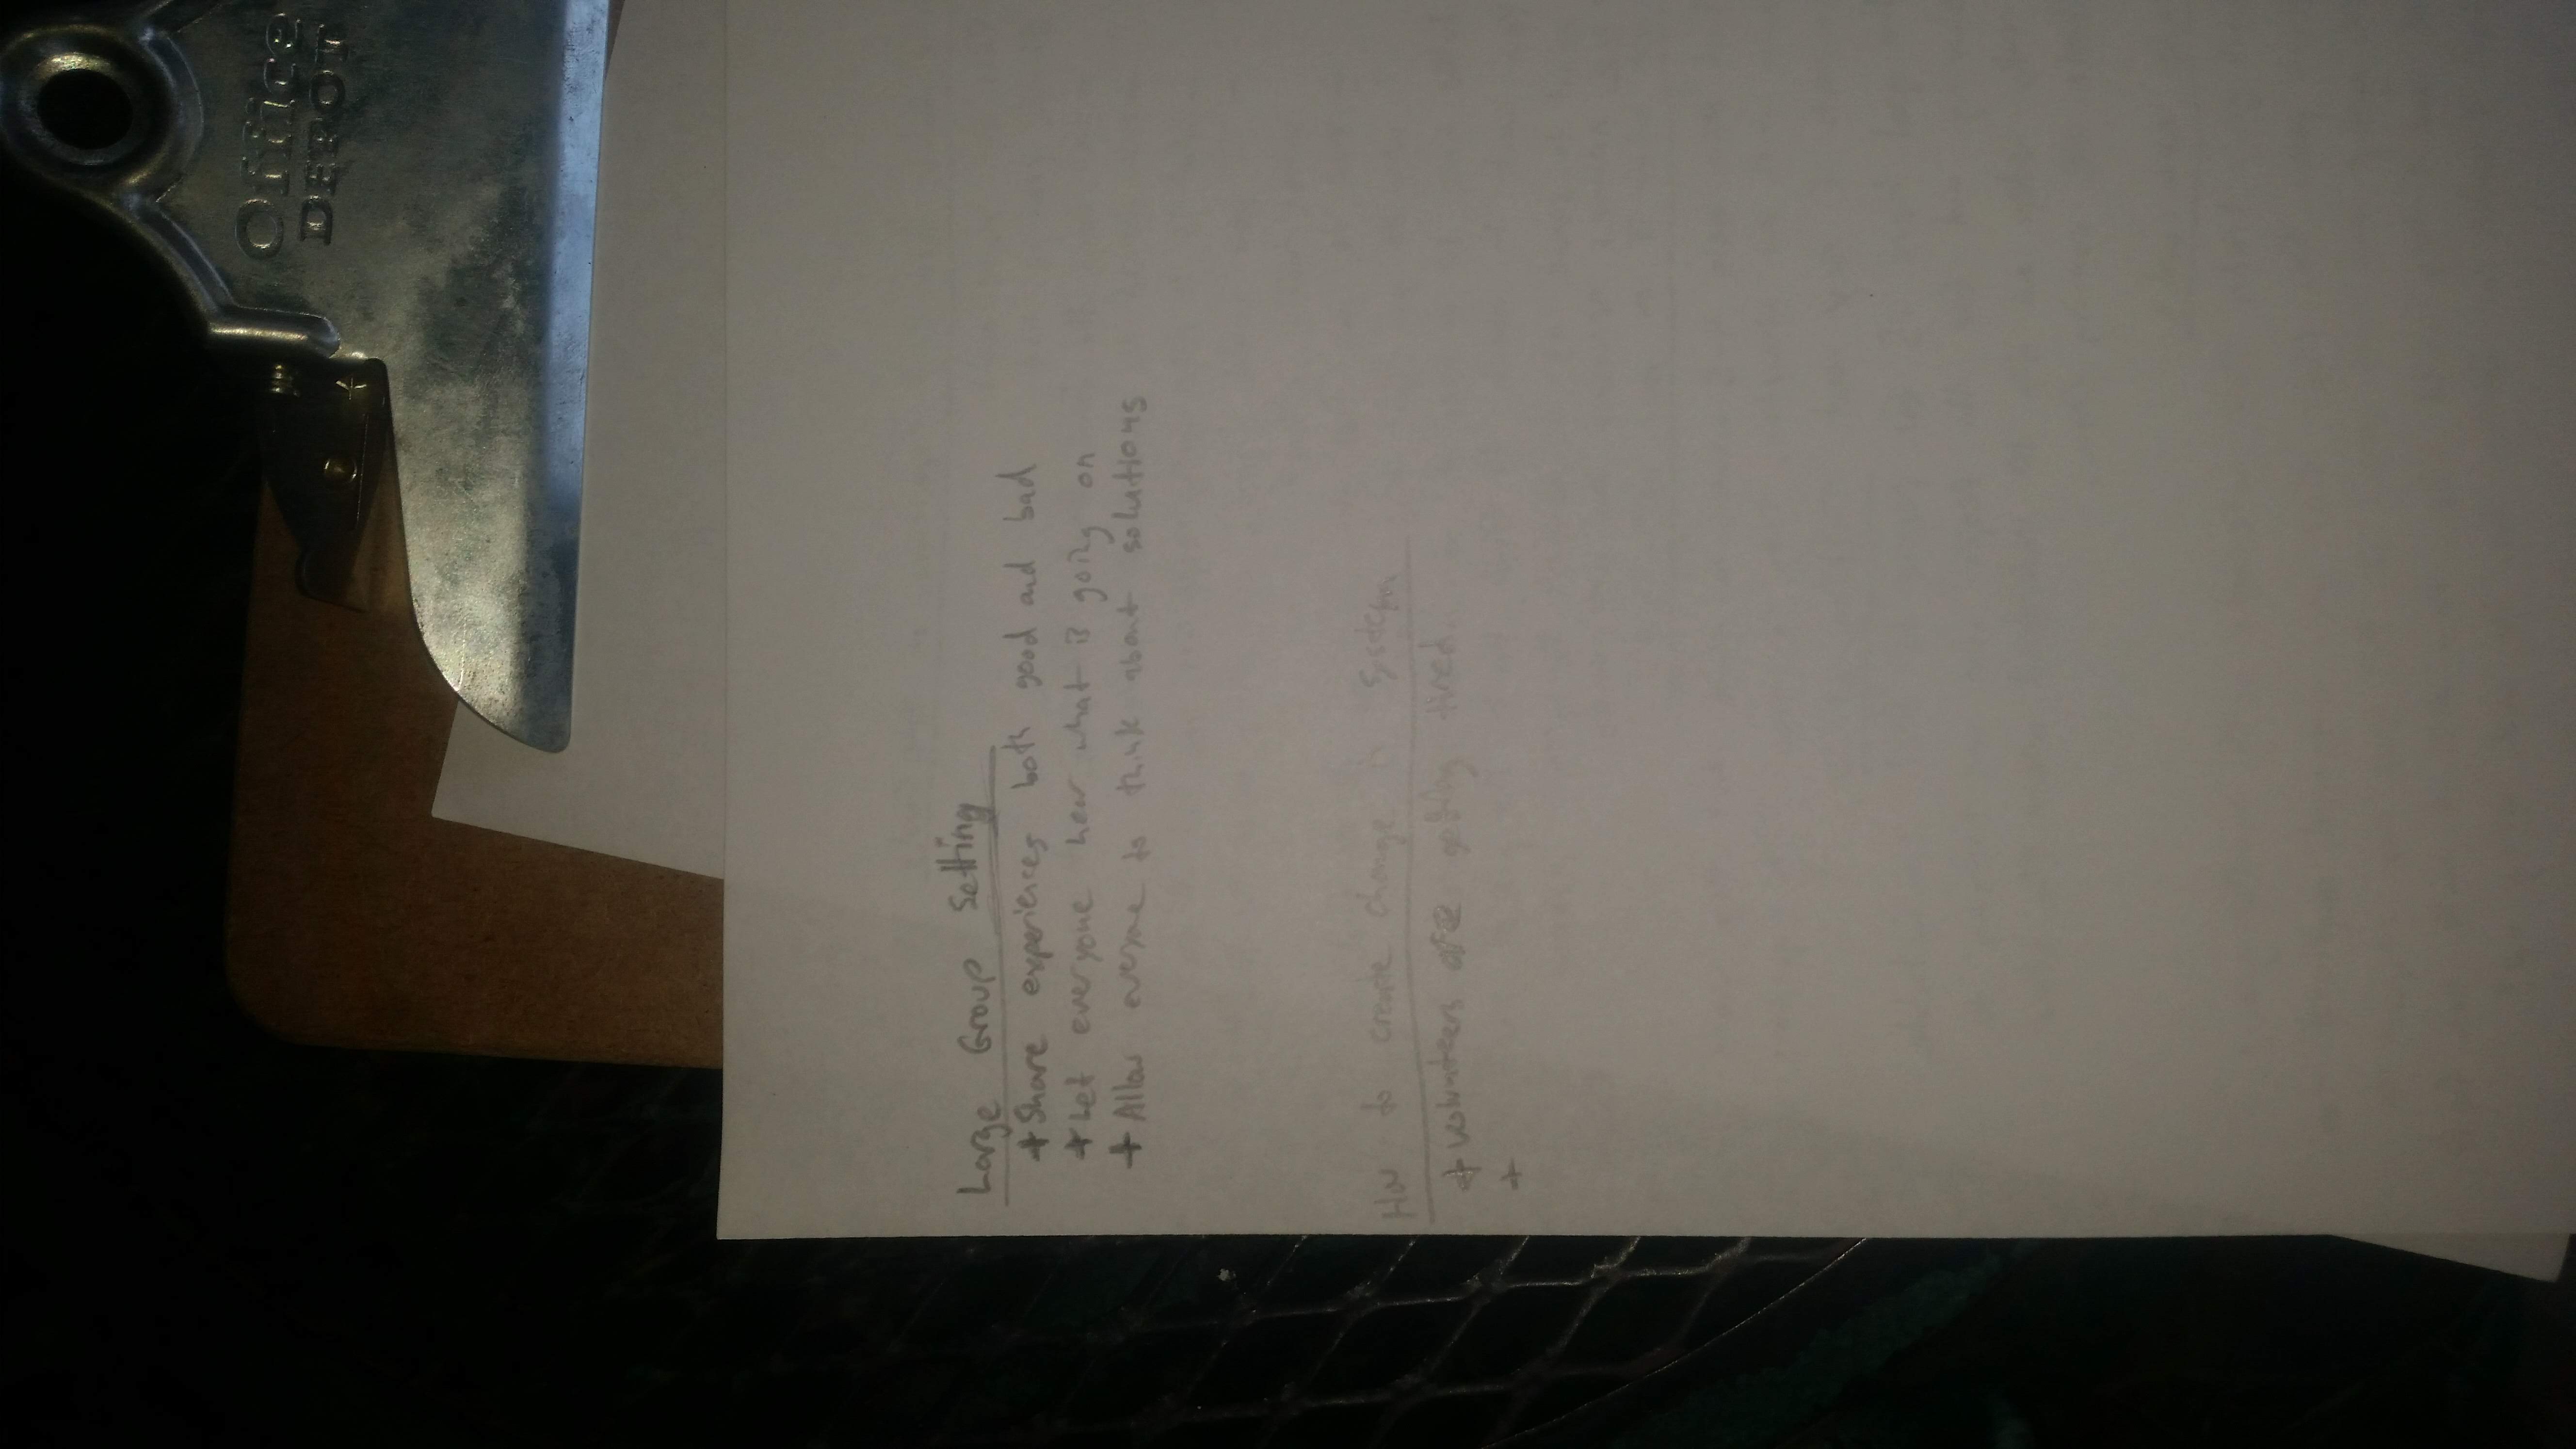 Office
DEPOT
Large Group Setting
+ Share experiences both good and bad
+ Let everyone hear what is going on
+ Allow everyone to think about solutions
How to create change in system
+ volunteers are getting tired
+